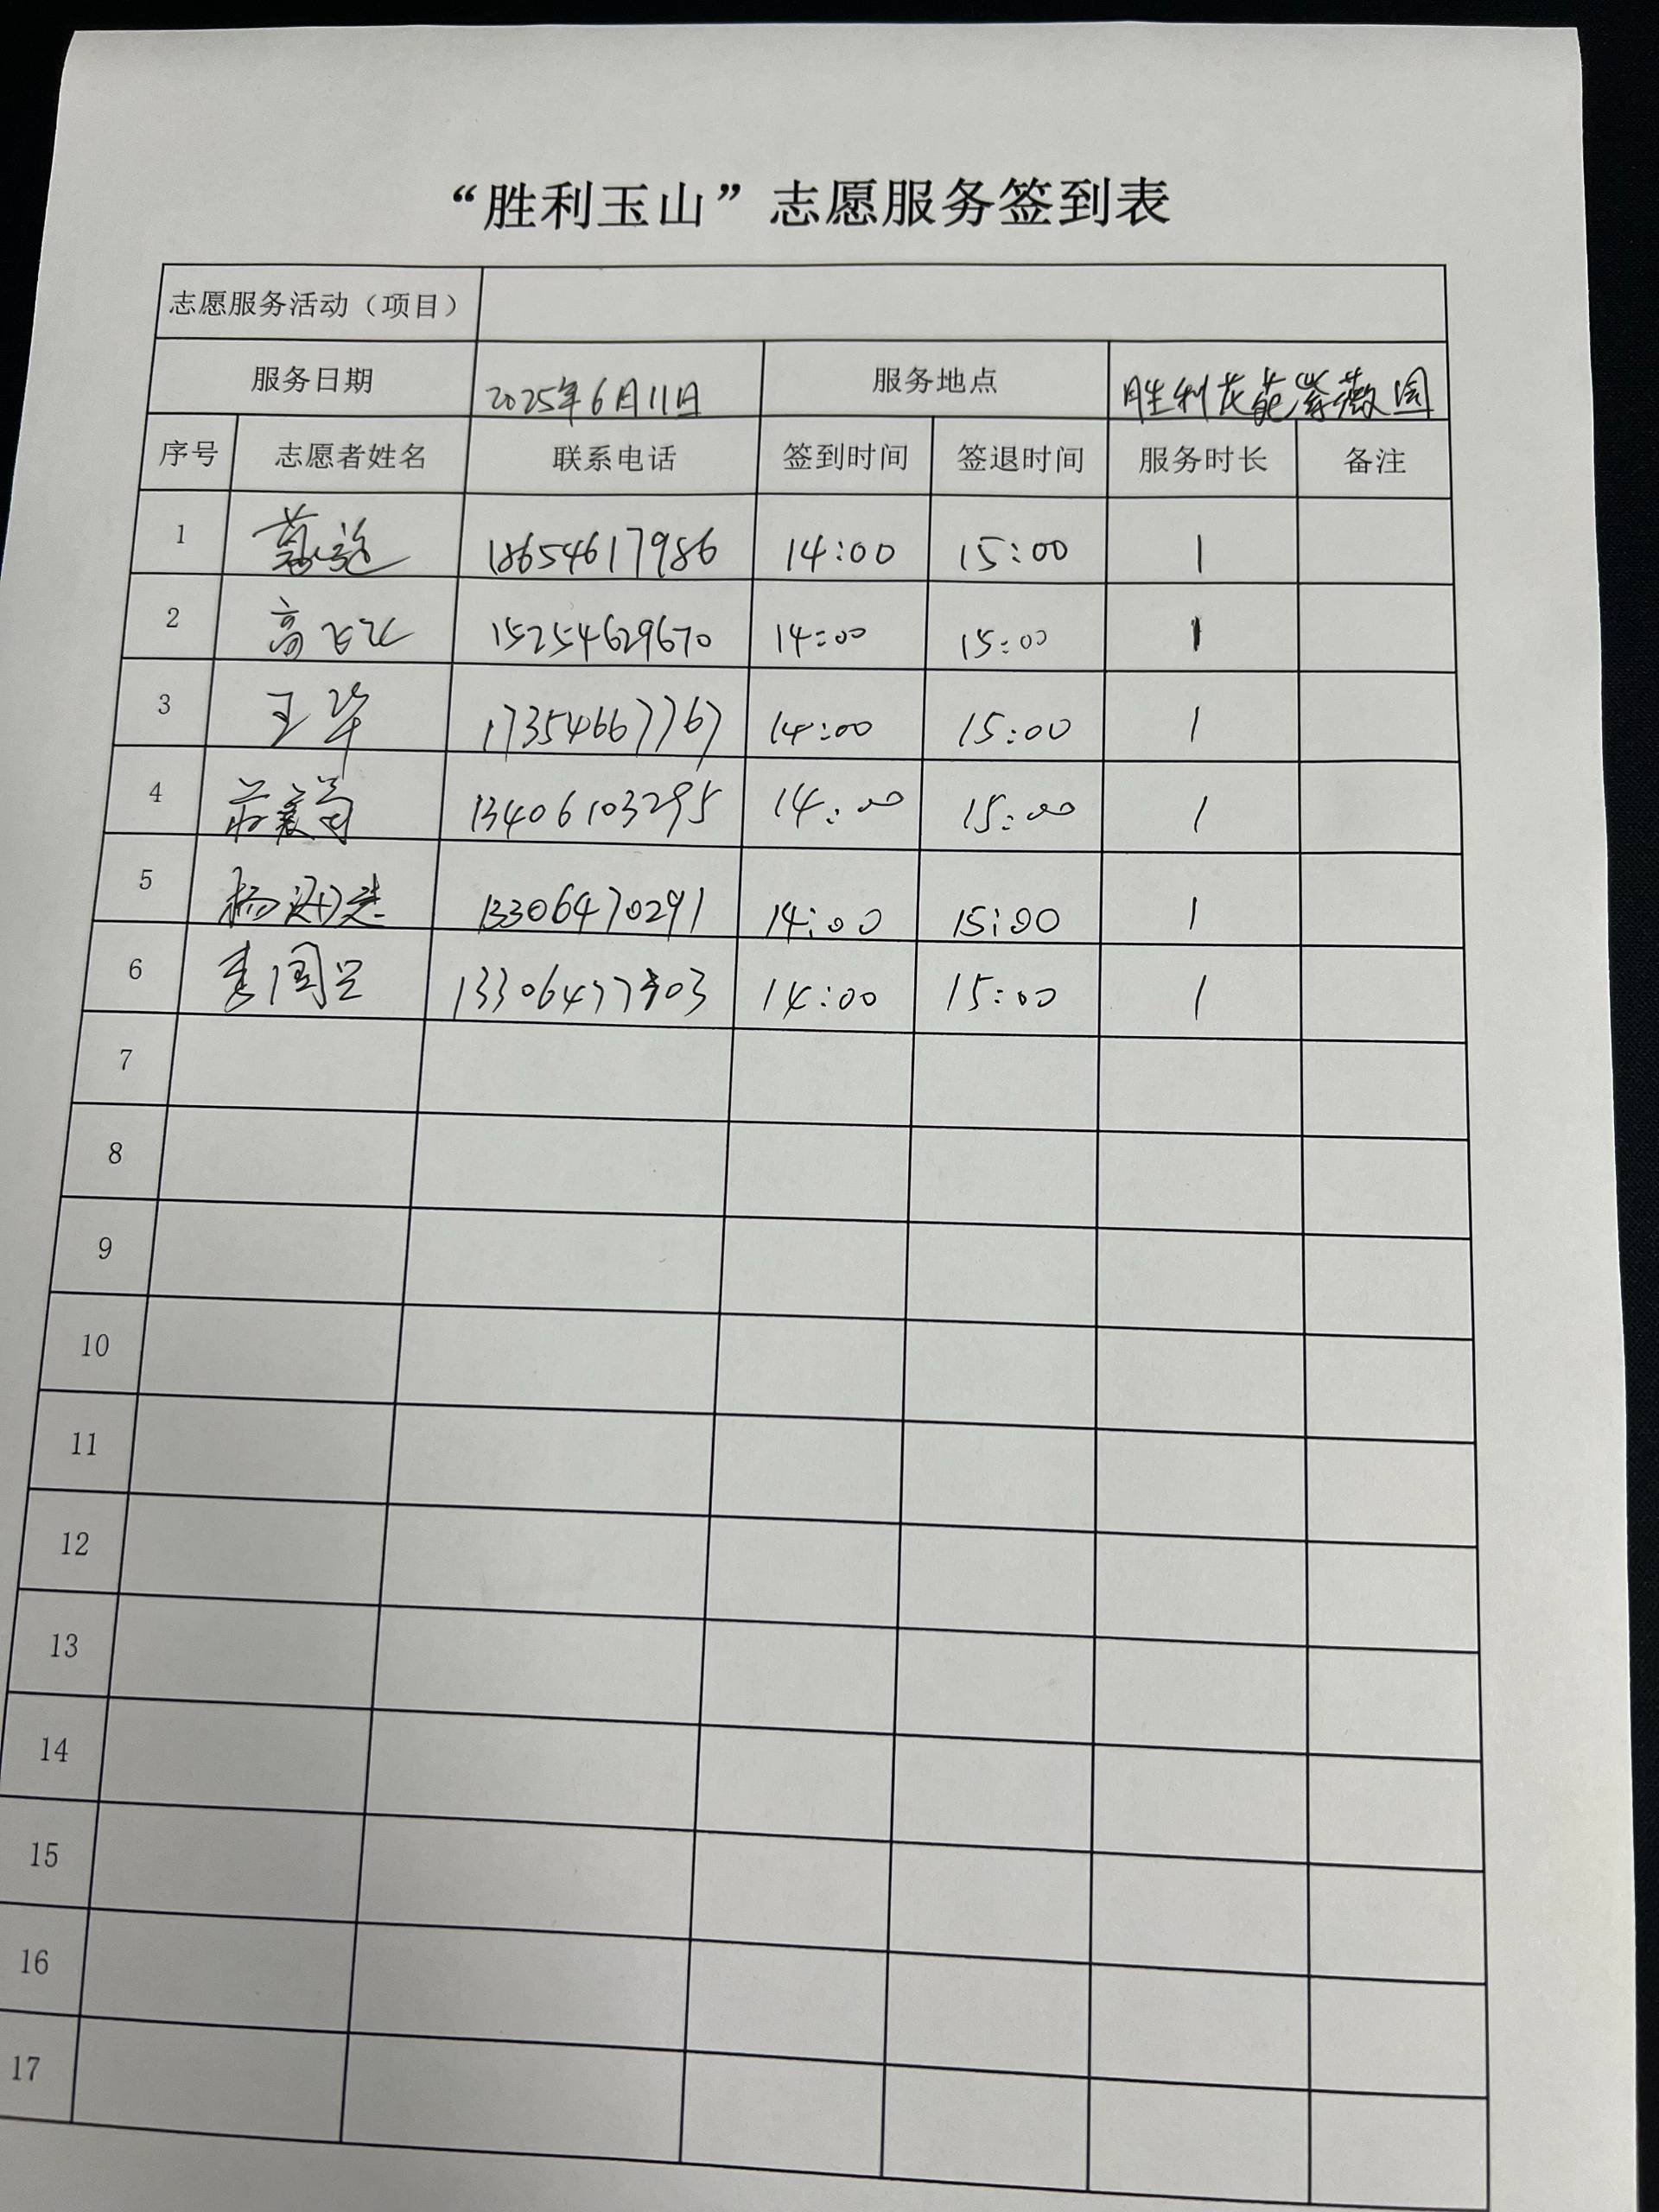 “胜利玉山”志愿服务签到表
志愿服务活动（项目）
服务日期 2025年6月11日 服务地点 胜利花苑紫薇园
序号 志愿者姓名 联系电话 签到时间 签退时间 服务时长 备注
1 18654617986 14:00 15:00 1
2 高飞 15254629670 14:00 15:00 1
3 王华 17354667767 14:00 15:00 1
4 13406103295 14:00 15:00 1
5 杨 13306470291 14:00 15:00 1
6 13306477303 14:00 15:00 1
7
8
9
10
11
12
13
14
15
16
17